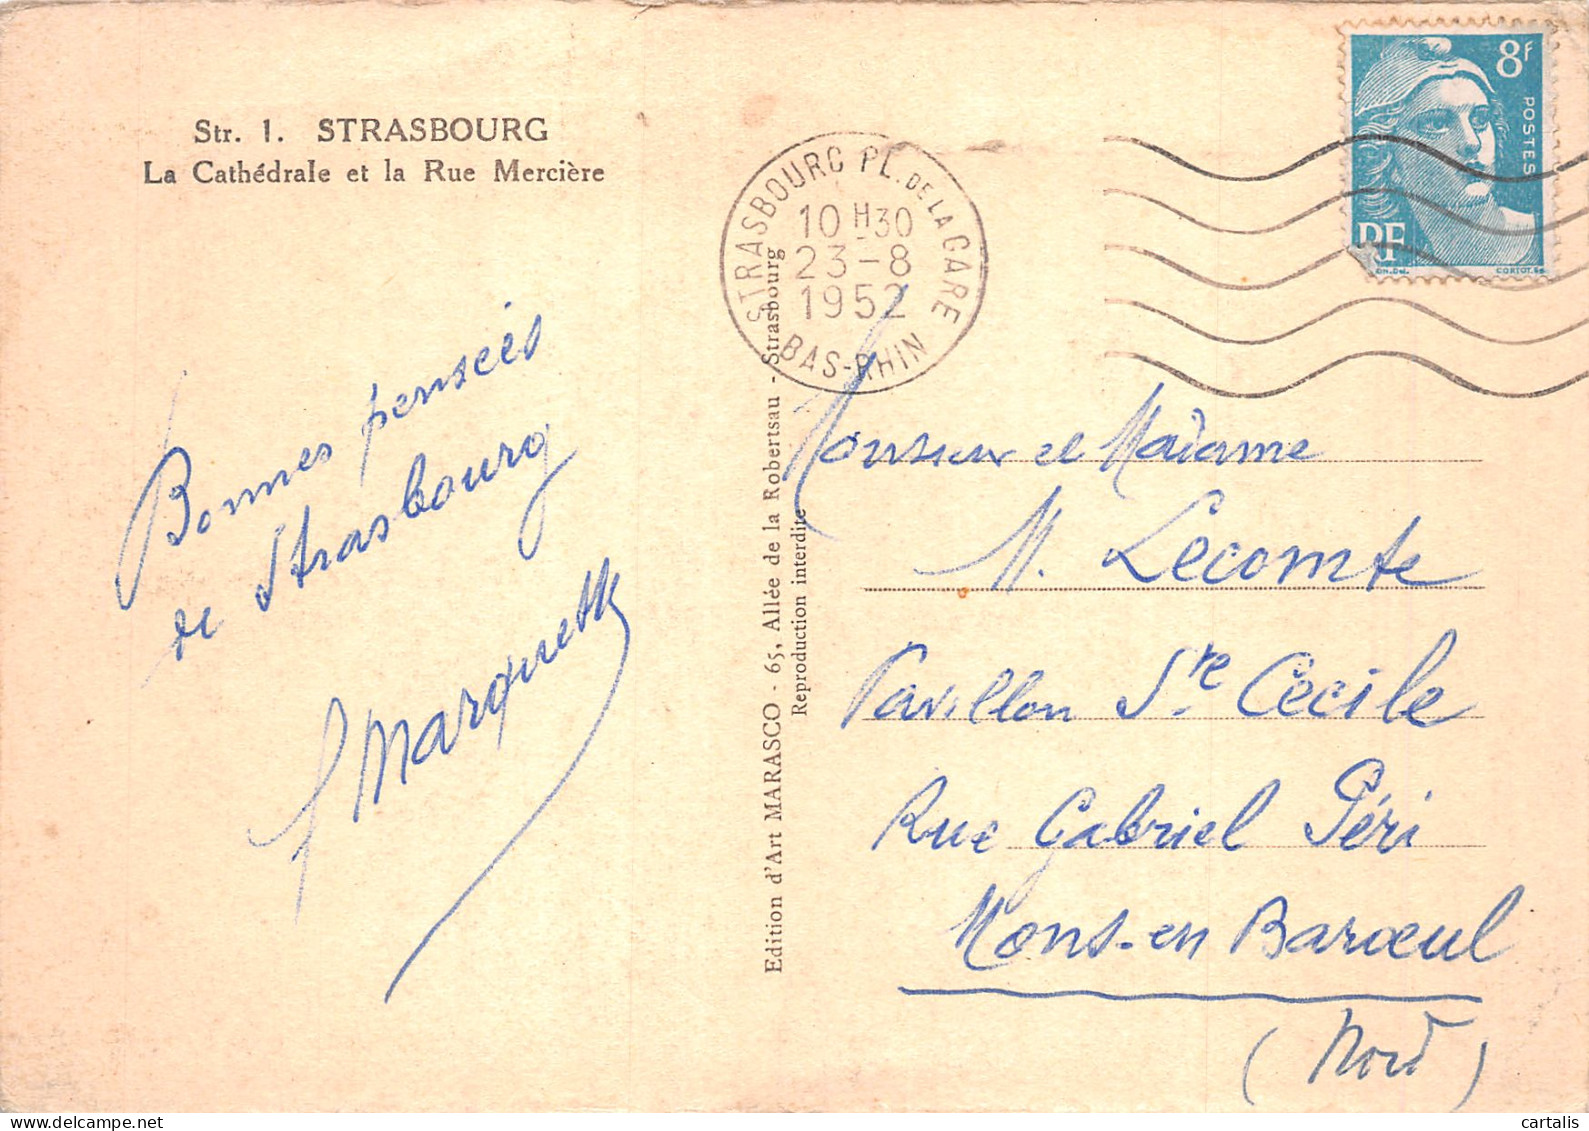 Str. 1. STRASBOURG
La Cathédrale et la Rue Mercière
Bonnes pensées
de Strasbourg
Marquette
Edition d'Art MARASCO - 65, Allée de la Robertsau - Strasbourg
Reproduction interdite
STRASBOURG PL. DE LA GARE
10 H 30
23-8
1952
BAS-RHIN
8f
POSTES
RF
CORTOT.
Monsieur et Madame
M. Lecomte
Pavillon Ste Cecile
Rue Gabriel Péri
Mons-en Barœul
(Nord)
cartalis
www.delcampe.net